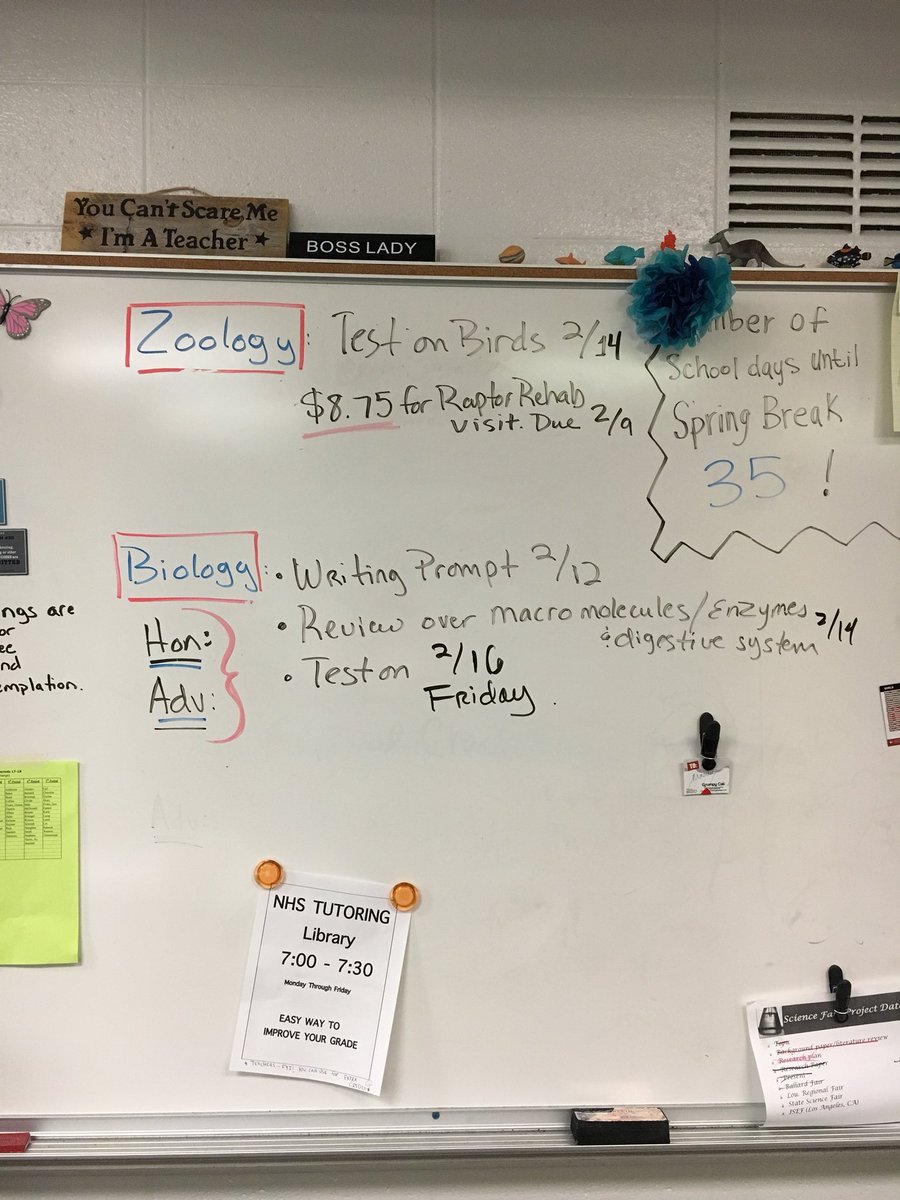 You Can't Scare Me
I'm A Teacher
BOSS LADY
Zoology: Test on Birds 2/14
$8.75 for Raptor Rehab
visit. Due 2/9
mber of
School days until
Spring Break
35!
Biology: • Writing Prompt 2/12
Hon:
Adv:
• Review over macromolecules/Enzymes
& digestive system 2/14
• Test on 2/16
Friday.
ngs are
or
ec
nd
emplation.
TO:
Grumpy Cat
NHS TUTORING
Library
7:00 - 7:30
Monday Through Friday
EASY WAY TO
IMPROVE YOUR GRADE
Science Fa Project Date
Topic
Background paper/literature review
Research plan
Research Paper
Present
Ballard Fair
Lou. Regional Fair
State Science Fair
ISEF (Los Angeles, CA)